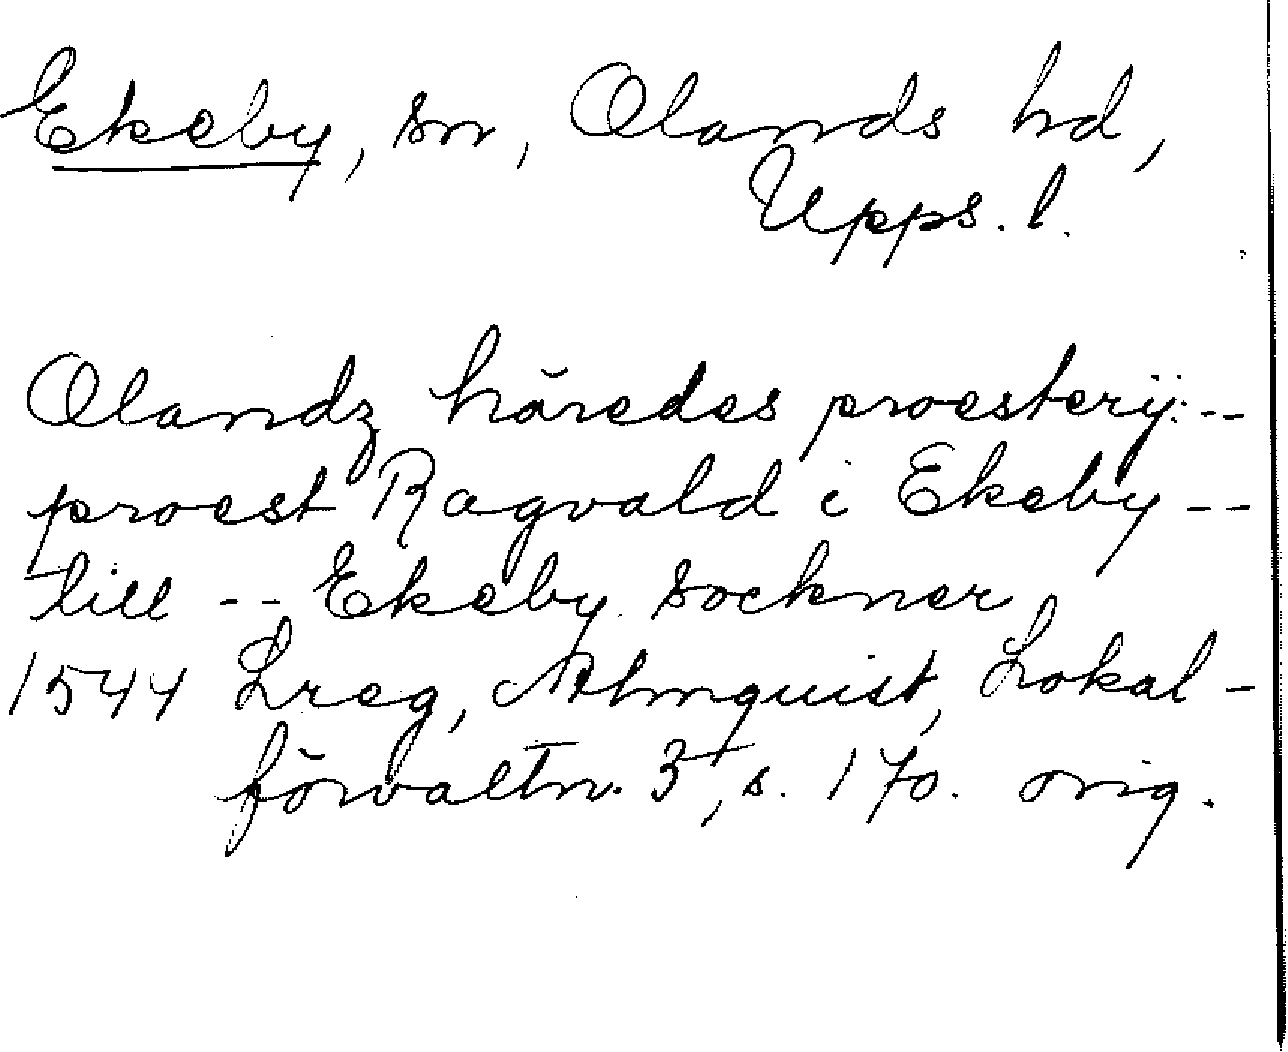 Ekeby, sn, Olands hd,
Upps. l.
Olandz häredes proesterij: --
proest Ragvald i Ekeby --
till -- Ekeby sockner
1544 Lreg, Almquist, Lokal-
förvaltn. 3, s. 170. orig.